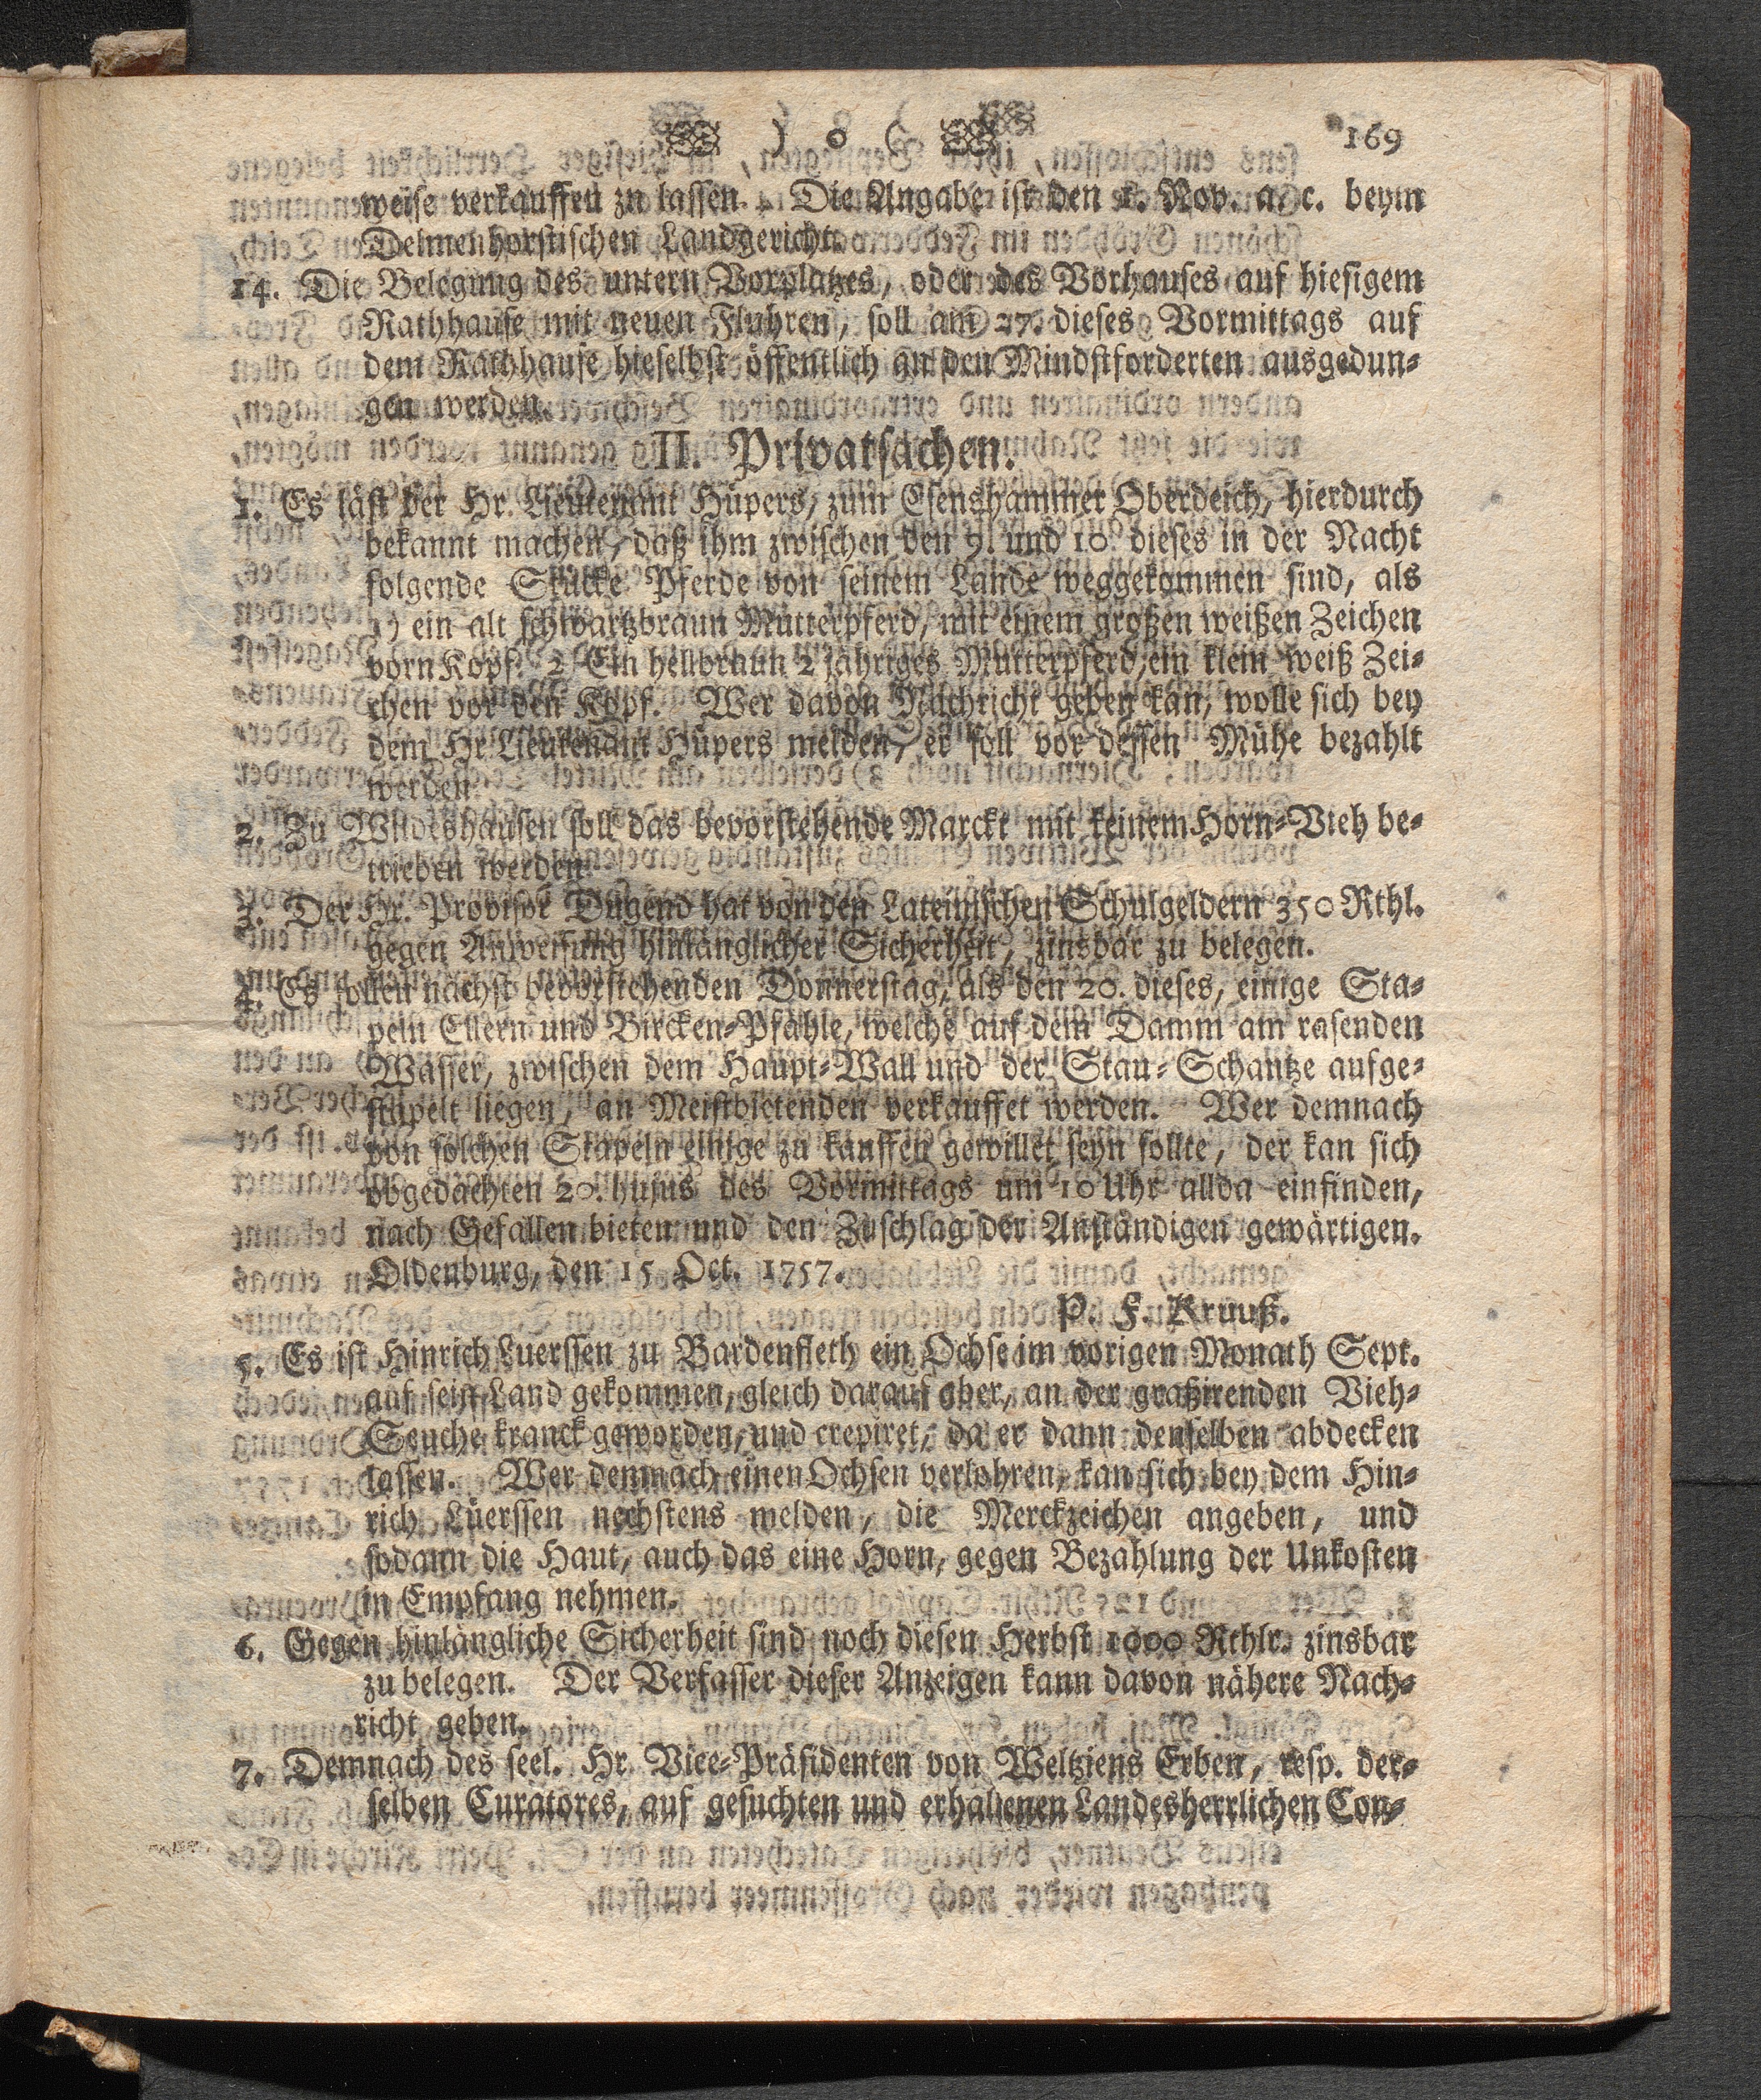 ) o ( 169
weise verkauffen zu lassen. Die Angabe ist den 1. Nov. a. c. beym
Delmenhorstischen Landgericht.
14. Die Belegung des untern Vorplatzes, oder des Vorhauses auf hiesigem
Rathhause mit neuen Fluhren, soll am 27. dieses Vormittags auf
dem Rathhause hieselbst öffentlich an den Mindstforderten ausgedun⸗
gen werden.
II. Privatsachen.
1. Es läst der Hr. Lieutenant Hüpers, zum Esenshammer Oberdeich, hierdurch
bekannt machen, daß ihm zwischen den 9. und 10. dieses in der Nacht
folgende Stücke Pferde von seinem Lande weggekommen sind, als
1) ein alt schwartzbraun Mutterpferd, mit einem großen weißen Zeichen
vorn Kopf. 2) Ein hellbraun 2 jähriges Mutterpferd, ein klein weiß Zei⸗
chen vor den Kopf. Wer davon Nachricht geben kan, wolle sich bey
dem Hr. Lieutenant Hüpers melden, er soll vor dessen Mühe bezahlt
werden.
2. Zu Wildeshausen soll das bevorstehende Marckt mit keinem Horn⸗Vieh be⸗
trieben werden.
3. Der Hr. Provisor Dugend hat von den Lateinischen Schulgeldern 350 Rthl.
gegen Anweisung hinlänglicher Sicherheit, zinsbar zu belegen.
4. Es sollen nächst bevorstehenden Donnerstag, als den 20. dieses, einige Sta⸗
peln Ellern und Bircken⸗Pfähle, welche auf dem Damm am rasenden
Wasser, zwischen dem Haupt⸗Wall und der Stau⸗Schantze aufge⸗
stapelt liegen, an Meistbietenden verkauffet werden. Wer demnach
von solchen Stapeln einige zu kauffen gewillet seyn sollte, der kan sich
obgedachten 20. hujus des Vormittags um 10 Uhr allda einfinden,
nach Gefallen bieten und den Zuschlag der Anständigen gewärtigen.
Oldenburg, den 15 Oct. 1757.
P. F. Kruuß.
5. Es ist Hinrich Luerssen zu Bardenfleth ein Ochse im vorigen Monath Sept.
auf sein Land gekommen, gleich darauf aber, an der graßirenden Vieh⸗
Seuche kranck geworden, und crepiret, da er dann denselben abdecken
lassen. Wer demnach einen Ochsen verlohren, kan sich bey dem Hin⸗
rich Lüerssen nechstens melden, die Merckzeichen angeben, und
sodann die Haut, auch das eine Horn, gegen Bezahlung der Unkosten
in Empfang nehmen.
6. Gegen hinlängliche Sicherheit sind noch diesen Herbst 1000 Rthlr. zinsbar
zu belegen. Der Verfasser dieser Anzeigen kann davon nähere Nach⸗
richt geben.
7. Demnach des seel. Hr. Vice⸗Präsidenten von Weltziens Erben, resp. der⸗
selben Curatores, auf gesuchten und erhaltenen Landesherrlichen Con⸗